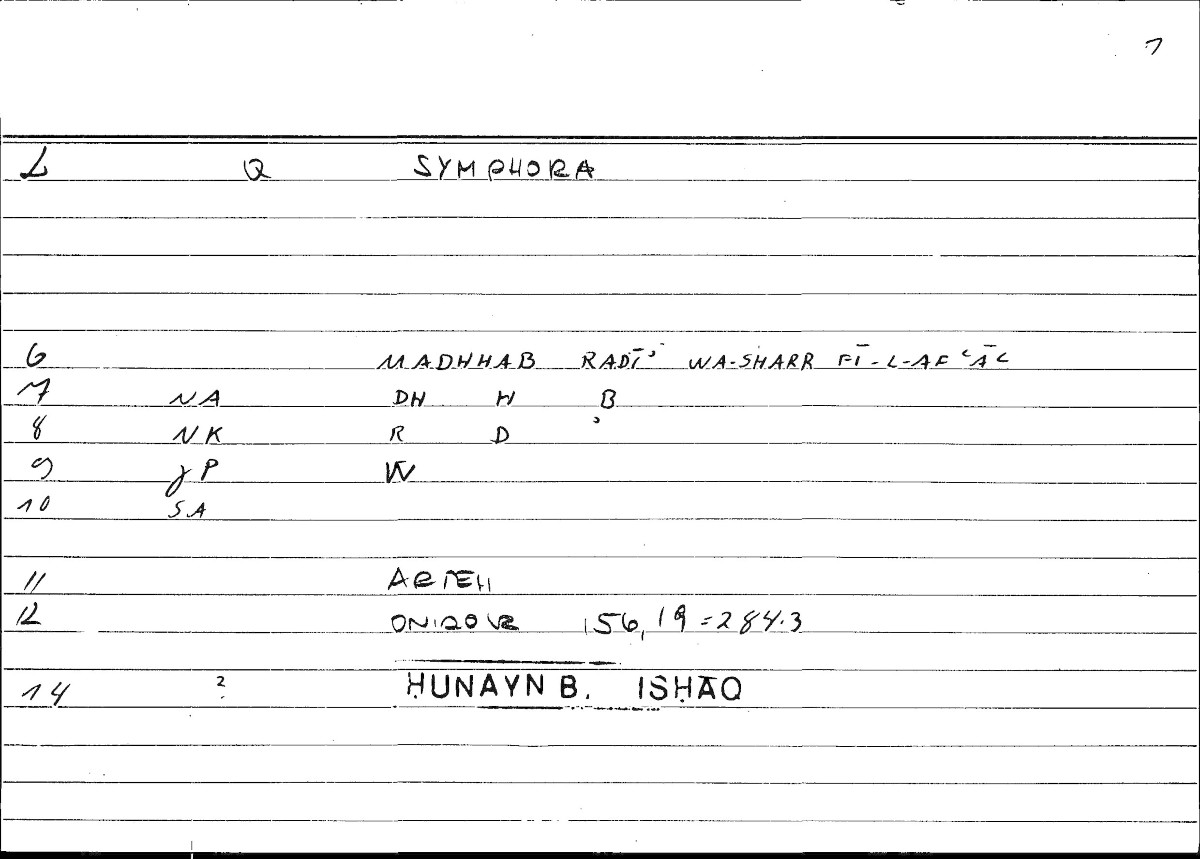 7
L Q SYMPHORA
6 MADHHAB RADĪʾ WA-SHARR FĪ-L-AFʿĀL
7 NA DH H B
8 NK R D ʾ
9 JP W
10 SA
11 ARTEM
12 ONIROKR 156,19=284.3
14 2 HUNAYN B. ISHĀQ